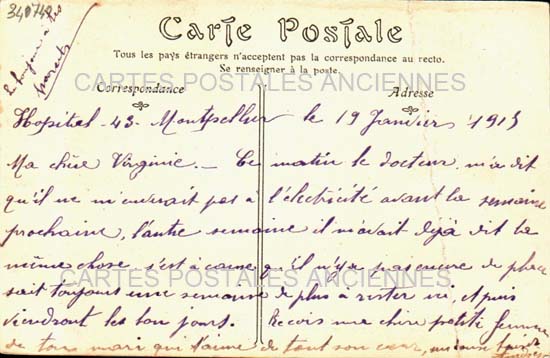 340740
Carte Postale
Tous les pays étrangers n'acceptent pas la correspondance au recto.
Se renseigner à la poste.
CARTES POSTALES ANCIENNES
Correspondance
Adresse
Hopital - 43 - Montpellier le 19 Janvier 1915
Ma chère Virginie. _ Ce matin le docteur m'a dit
qu'il ne m'enverrait pas à l'électricité avant la semaine
prochaine, l'autre semaine il m'avait déjà dit la
même chose s'est à cause qu'il n'y a pas encore de place
CARTES POSTALES ANCIENNES
sait toujours une semaine de plus à rester ici, et puis
viendront les bon jours. Recois ma chère petite femme
de ton mari qui t'aime de tout son cœur,